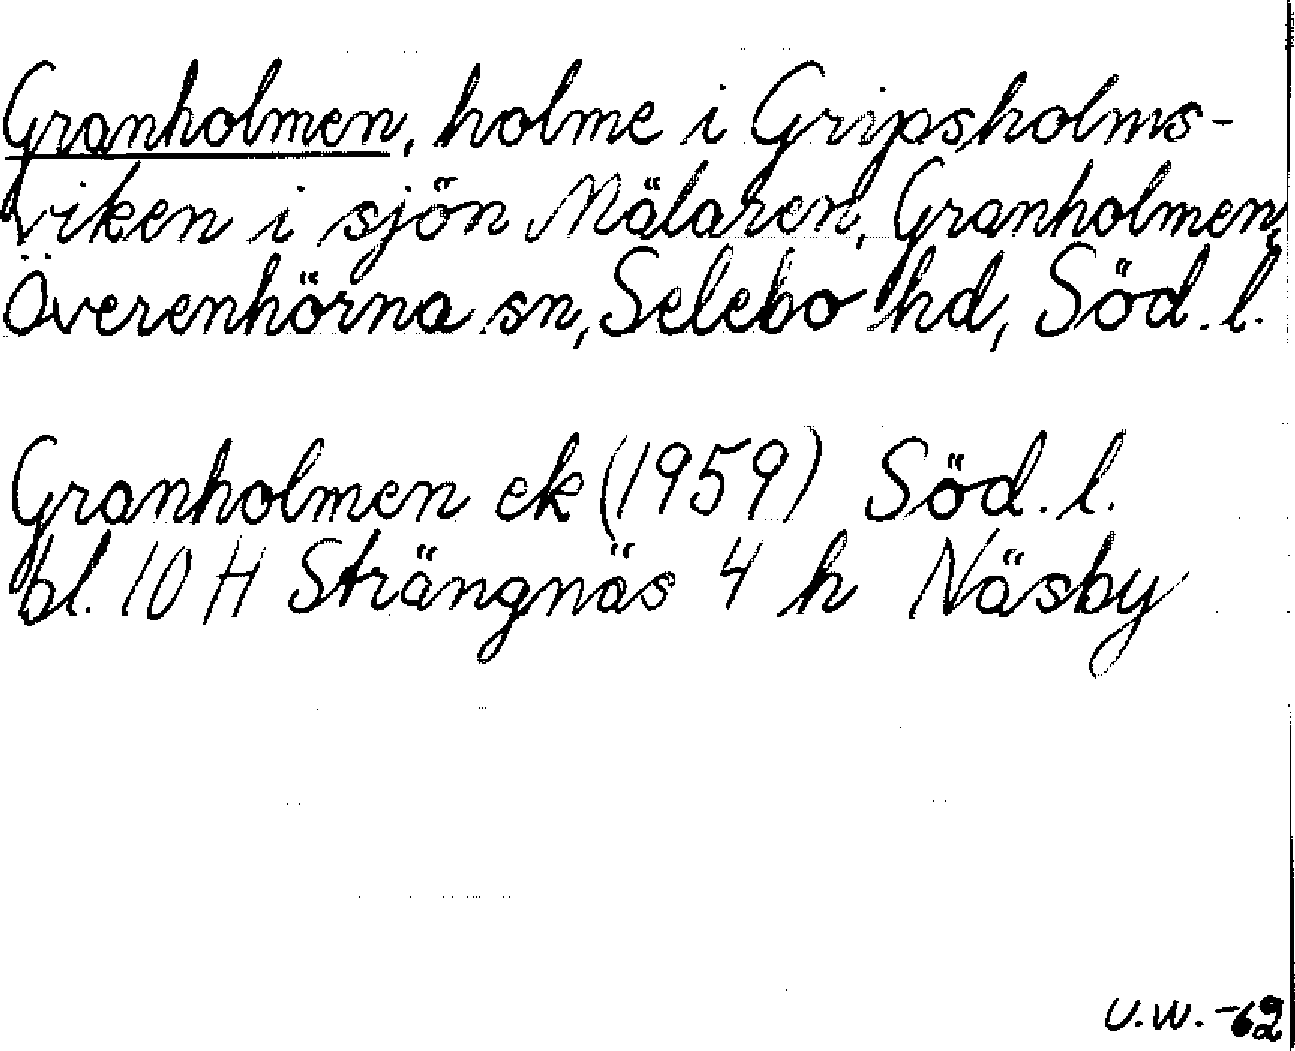 Granholmen, holme i Gripsholms-
viken i sjön Mälaren, Granholmen,
Överenhörna sn, Selebo hd, Söd. l.
Granholmen ek (1959) Söd. l.
bl. 10 H Strängnäs 4 h Näsby
U.W. -62